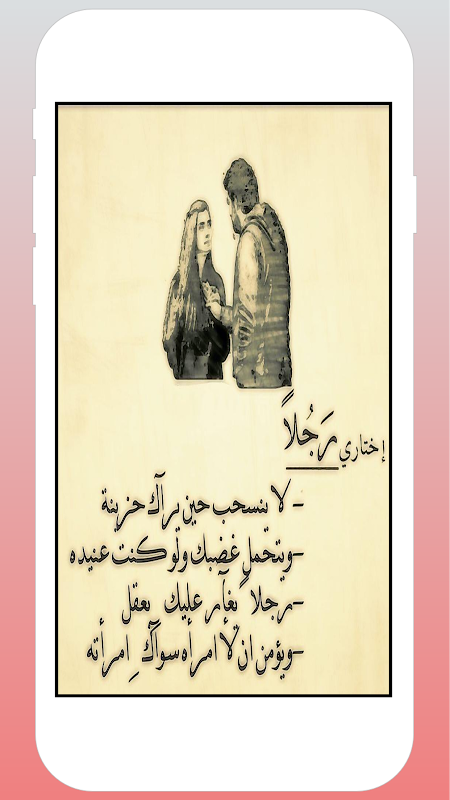 إختاري رَجُلاً
- لا ينسحب حين يرآك حزينة
-ويتحمل غضبك ولو كنت عنيده
-رجلا يغآر عليك بعقل
-ويؤمن ان لا امرأه سوآك ِ امرأته